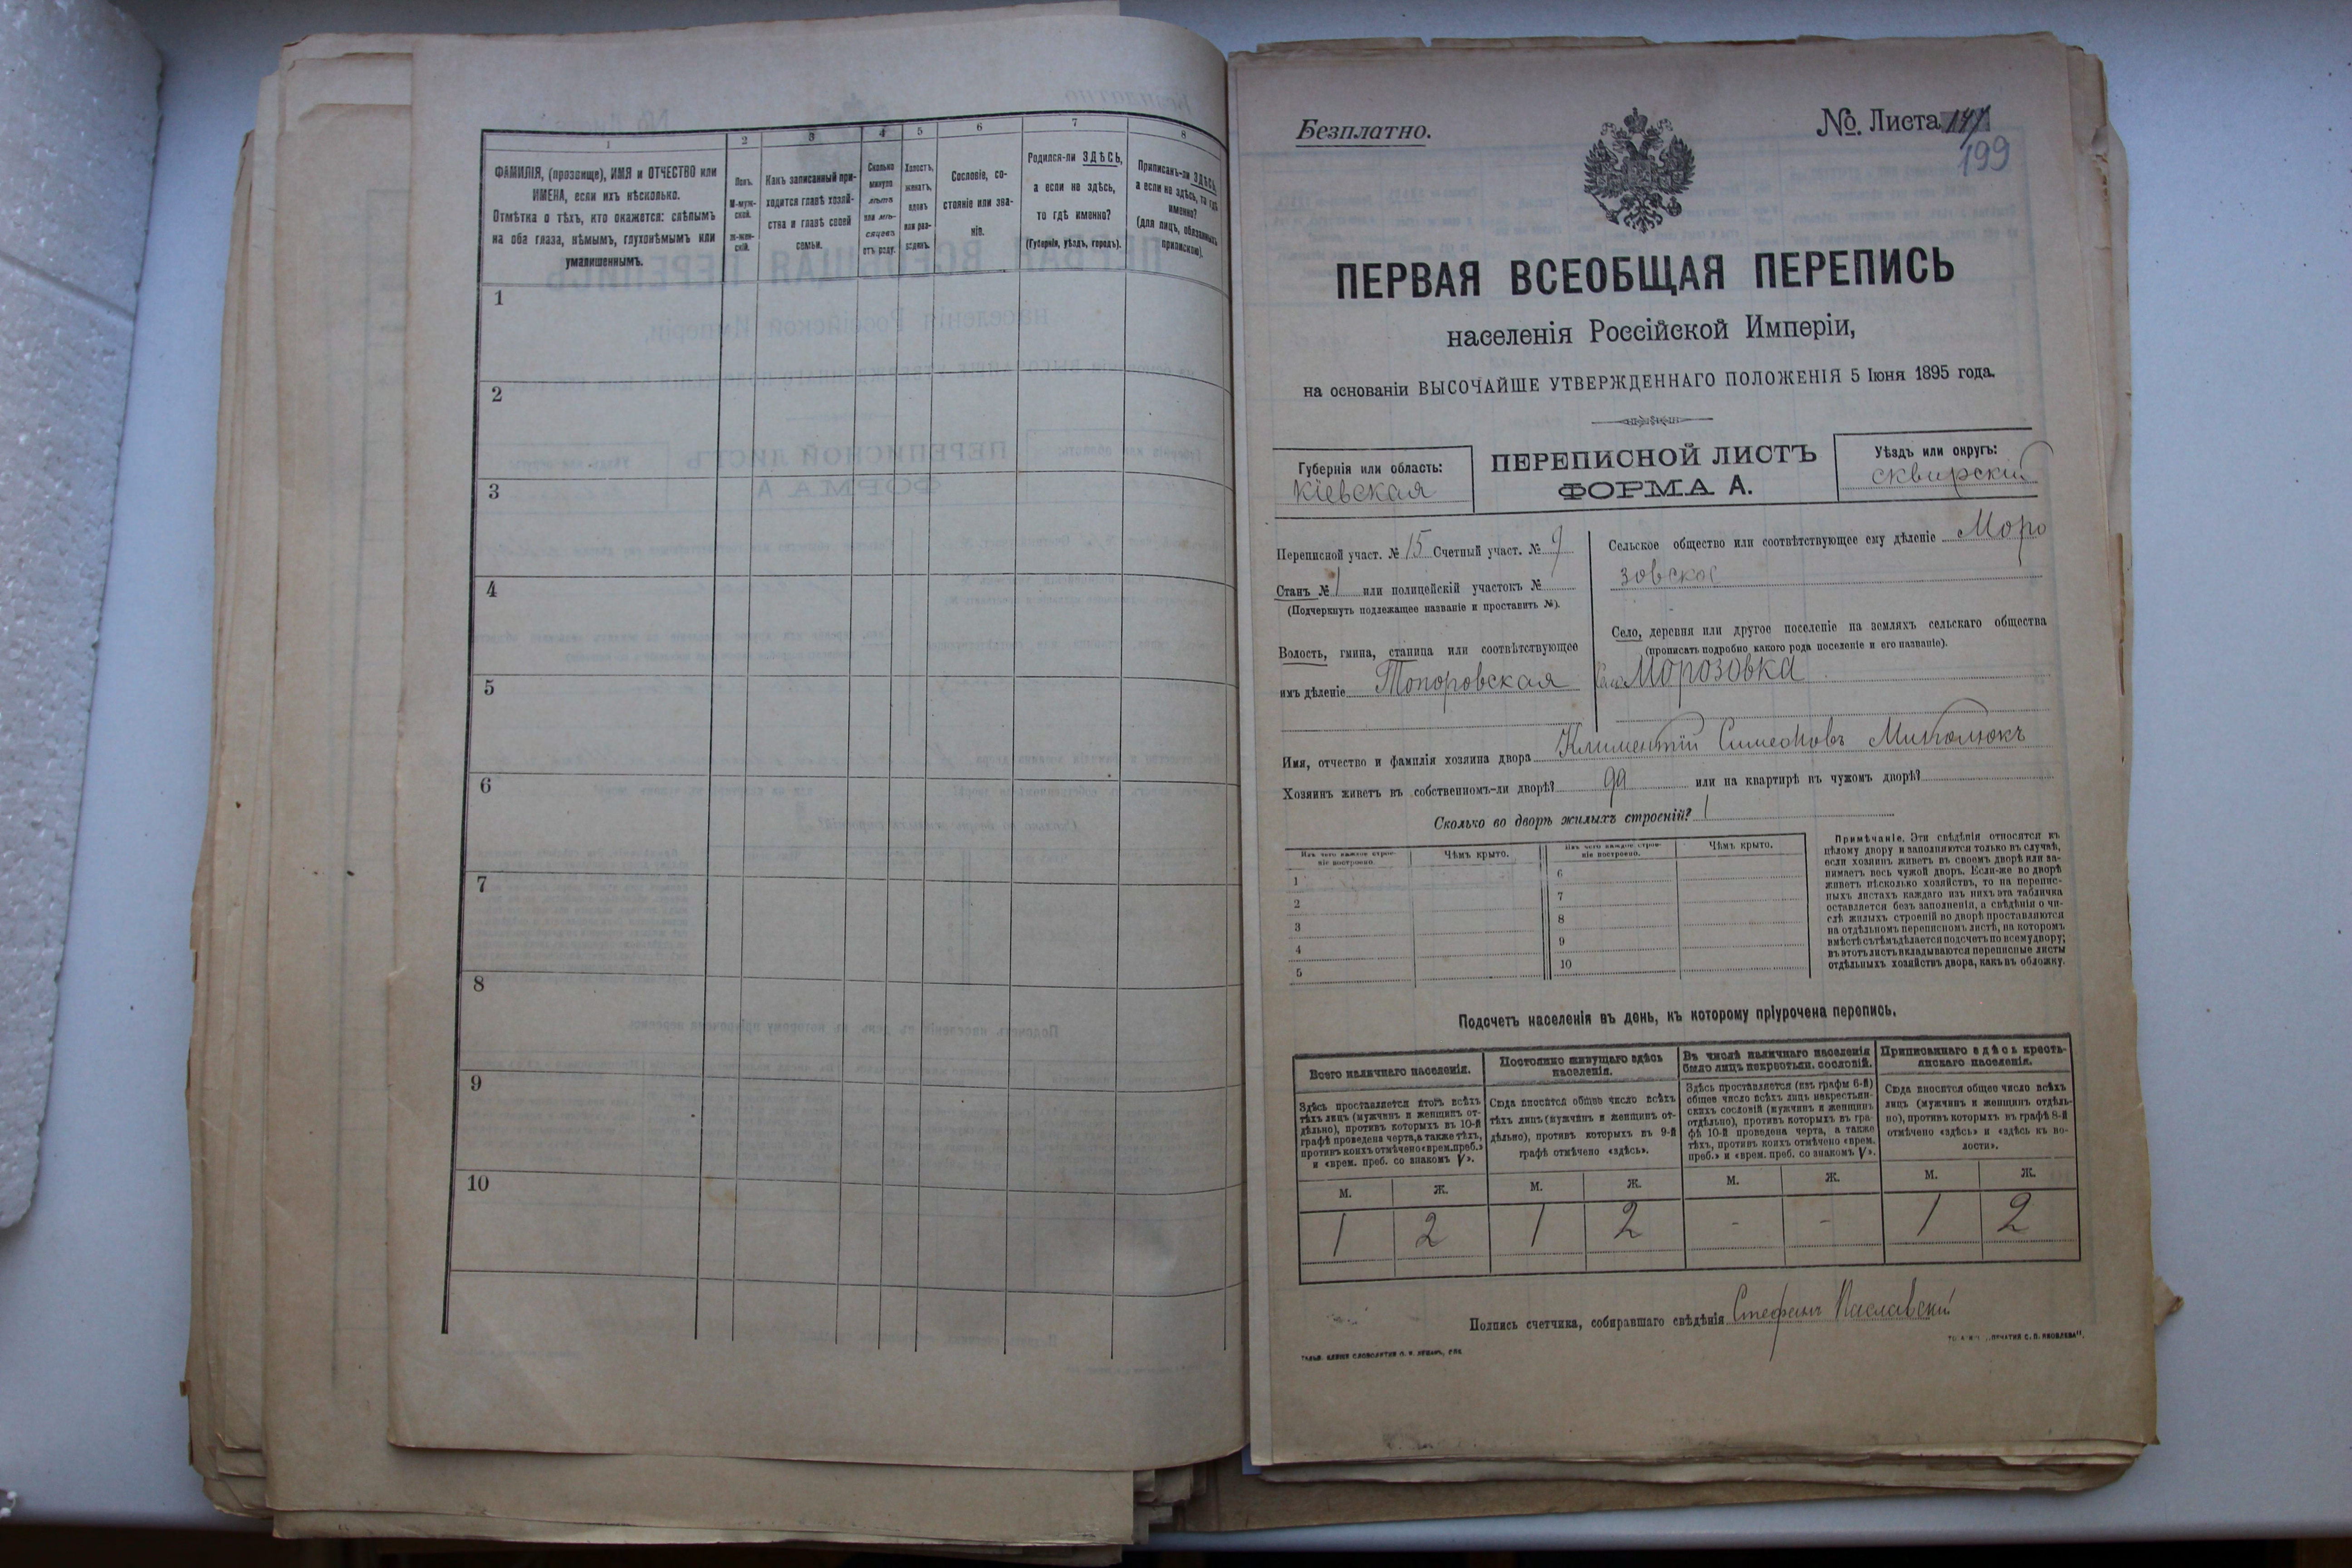 1
2
3
4
5
6
7
8
ФАМИЛІЯ, (прозвище), ИМЯ и ОТЧЕСТВО или
ИМЕНА, если ихъ нѣсколько.
Отмѣтка о тѣхъ, кто окажется: слѣпымъ
на оба глаза, нѣмымъ, глухонѣмымъ или
умалишеннымъ.
Полъ.
М-муж-
ской.
Ж-жен-
скій.
Какъ записанный при-
ходится главѣ хозяй-
ства и главѣ своей
семьи.
Сколько
минуло
лѣтъ
или мѣ-
сяцевъ
отъ роду.
Холостъ,
женатъ,
вдовъ
или раз-
веденъ.
Сословіе, со-
стояніе или зва-
ніе.
Родился-ли ЗДѢСЬ,
а если не здѣсь,
то гдѣ именно?
(Губернія, уѣздъ, городъ).
Приписанъ-ли ЗДѢСЬ,
а если не здѣсь, то гдѣ
именно?
(для лицъ, обязанныхъ
припискою).
1
2
3
4
5
6
7
8
9
10
Безплатно.
№. Листа
199
ПЕРВАЯ ВСЕОБЩАЯ ПЕРЕПИСЬ
населенія Россійской Имперіи,
на основаніи ВЫСОЧАЙШЕ УТВЕРЖДЕННАГО ПОЛОЖЕНІЯ 5 Іюня 1895 года.
Губернія или область:
Кіевская
ПЕРЕПИСНОЙ ЛИСТЪ
ФОРМА А.
Уѣздъ или округъ:
Сквирскій
Переписной участ. № 15 Счетный участ. № 9
Станъ № 1 или полицейскій участокъ №
(Подчеркнуть подлежащее названіе и проставить №).
Волость, гмина, станица или соотвѣтствующее
имъ дѣленіе Топоровская
Сельское общество или соотвѣтствующее ему дѣленіе Моро
зовское
Село, деревня или другое поселеніе на земляхъ сельскаго общества
(прописать подробно какого рода поселеніе и его названіе).
Село Морозовка
Имя, отчество и фамилія хозяина двора Климентій Симеоновъ Миколюкъ
Хозяинъ живетъ въ собственномъ-ли дворѣ? да или на квартирѣ въ чужомъ дворѣ?
Сколько во дворѣ жилыхъ строеній? 1
Изъ чего каждое строе-
ніе построено.
Чѣмъ крыто.
Изъ чего каждое строе-
ніе построено.
Чѣмъ крыто.
1
2
3
4
5
6
7
8
9
10
Примѣчаніе. Эти свѣдѣнія относятся къ
цѣлому двору и заполняются только въ случаѣ,
если хозяинъ живетъ въ своемъ дворѣ или за-
нимаетъ весь чужой дворъ. Если-же во дворѣ
живетъ нѣсколько хозяйствъ, то на перепис-
ныхъ листахъ каждаго изъ нихъ эта табличка
оставляется безъ заполненія, а свѣдѣнія о чи-
слѣ жилыхъ строеній во дворѣ проставляются
на отдѣльномъ переписномъ листѣ, на которомъ
вмѣстѣ съ тѣмъ дѣлается подсчетъ по всему двору;
въ этотъ листъ вкладываются переписные листы
отдѣльныхъ хозяйствъ двора, какъ въ обложку.
Подсчетъ населенія въ день, къ которому пріурочена перепись.
Всего наличнаго населенія.
Постоянно живущаго здѣсь
населенія.
Въ числѣ наличнаго населенія
было лицъ некрестьян. сословій.
Приписаннаго здѣсь кресть-
янскаго населенія.
Здѣсь проставляется итогъ всѣхъ
тѣхъ лицъ (мужчинъ и женщинъ от-
дѣльно), противъ которыхъ въ 10-й
графѣ проведена черта, а также тѣхъ,
противъ коихъ отмѣчено «врем. преб.»
и «врем. преб. со знакомъ V».
Сюда вносится общее число всѣхъ
тѣхъ лицъ (мужчинъ и женщинъ от-
дѣльно), противъ которыхъ въ 9-й
графѣ отмѣчено «здѣсь».
Здѣсь проставляется (изъ графы 6-й)
общее число всѣхъ лицъ некрестьян-
скихъ сословій (мужчинъ и женщинъ
отдѣльно), противъ которыхъ въ гра-
фѣ 10-й проведена черта, а также
тѣхъ, противъ коихъ отмѣчено «врем.
преб.» и «врем. преб. со знакомъ V».
Сюда вносится общее число всѣхъ
лицъ (мужчинъ и женщинъ отдѣль-
но), противъ которыхъ въ графѣ 8-й
отмѣчено «здѣсь» и «здѣсь въ во-
лости».
М. Ж. М. Ж. М. Ж. М. Ж.
1 2 1 2 - - 1 2
Подпись счетчика, собиравшаго свѣдѣнія Стефанъ Паславскій